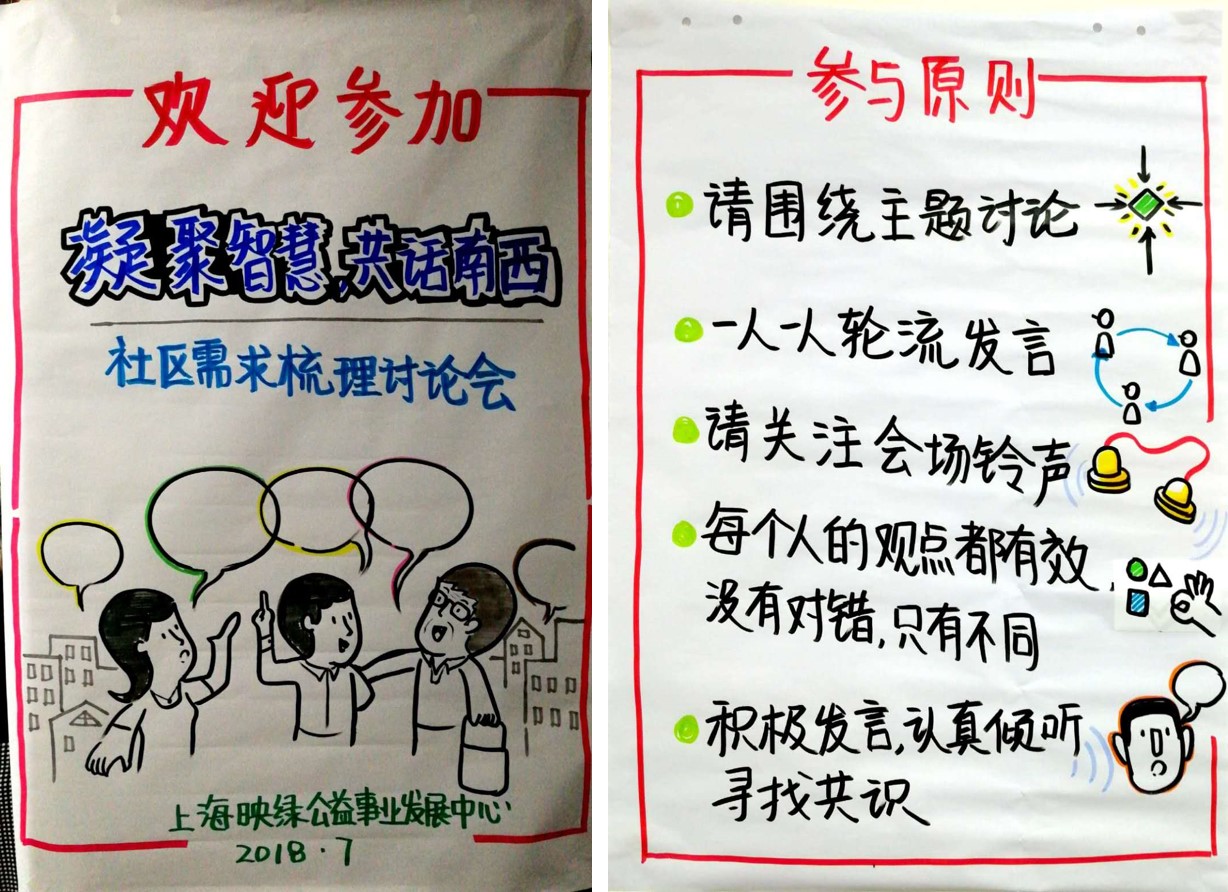 欢迎参加
凝聚智慧,共话南西
社区需求梳理讨论会
上海映绿公益事业发展中心
2018.7
参与原则
请围绕主题讨论
一人一人轮流发言
请关注会场铃声
每个人的观点都有效,
没有对错,只有不同
积极发言,认真倾听
寻找共识